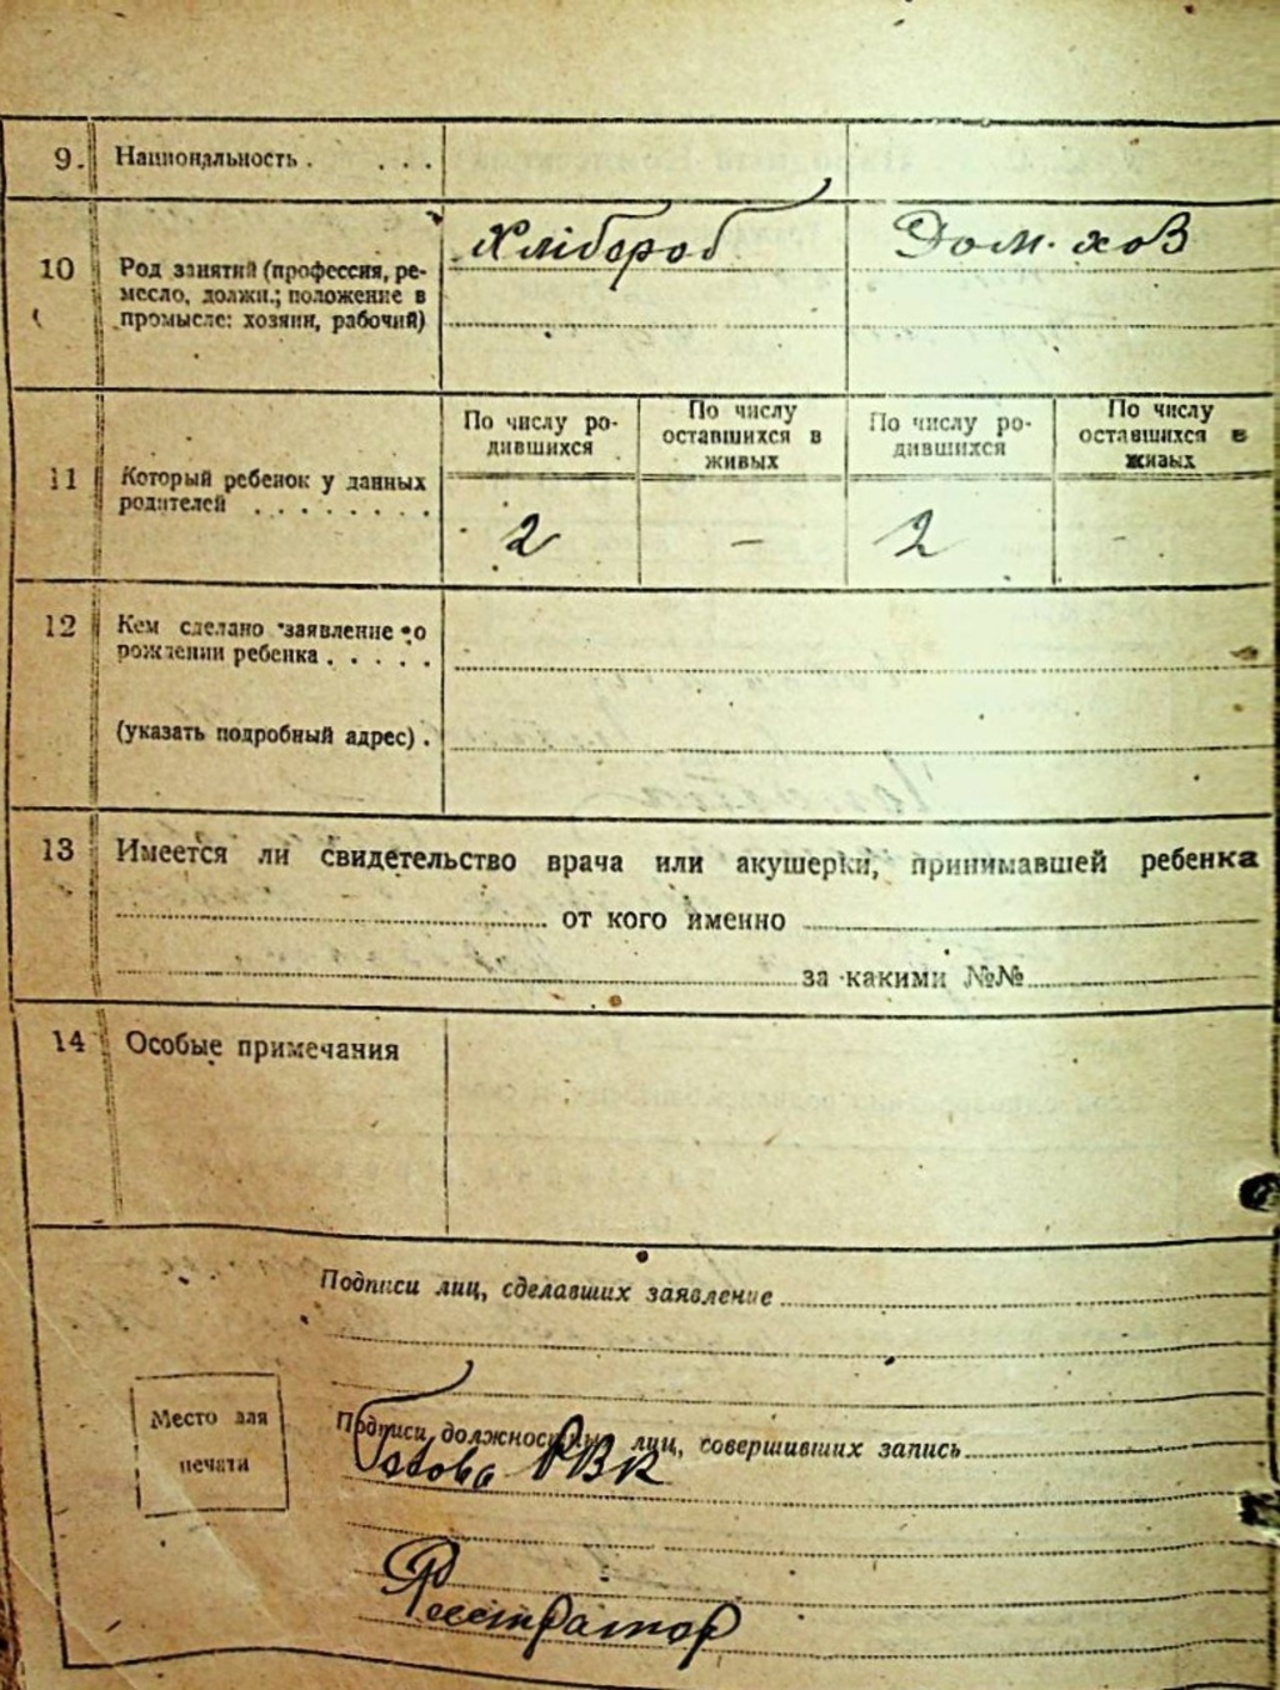 9. Национальность . . . .
Хлібороб Дом. хоз
10 Род занятий (профессия, ре-
месло, должн.; положение в
промысле: хозяин, рабочий)
По числу ро-
дившихся
По числу
оставшихся в
живых
По числу ро-
дившихся
По числу
оставшихся в
живых
11 Который ребенок у данных
родителей . . . . . . . .
2 — 2 -
12 Кем сделано заявление о
рождении ребенка . . . . .
(указать подробный адрес) .
13 Имеется ли свидетельство врача или акушерки, принимавшей ребенка
от кого именно
за какими №№
14 Особые примечания
Подписи лиц, сделавших заявление
Место для
печати
Подписи должностных лиц, совершивших запись
Голова РВК
Реєстратор